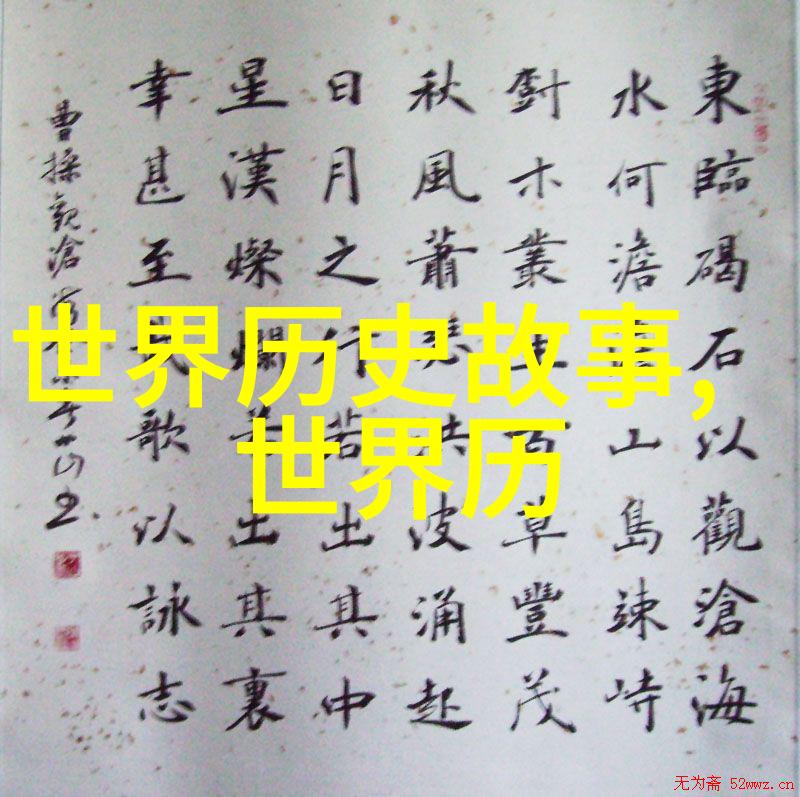 東臨碣石以觀滄海
水何澹山島竦峙
樹木叢生百草豐茂
秋風蕭瑟洪波涌起
日月之行若出其中
星漢燦爛若出其裏
幸甚至哉歌以詠志
曹操觀滄海
世界历史故事,
世界历
无为斋 52wwz.cn